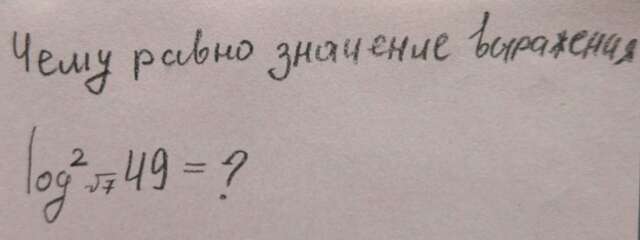 Чему равно значение выражения
log²_√7 49 = ?